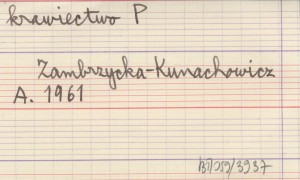 krawiectwo P
Zambrzycka-Kunachowicz
A. 1961